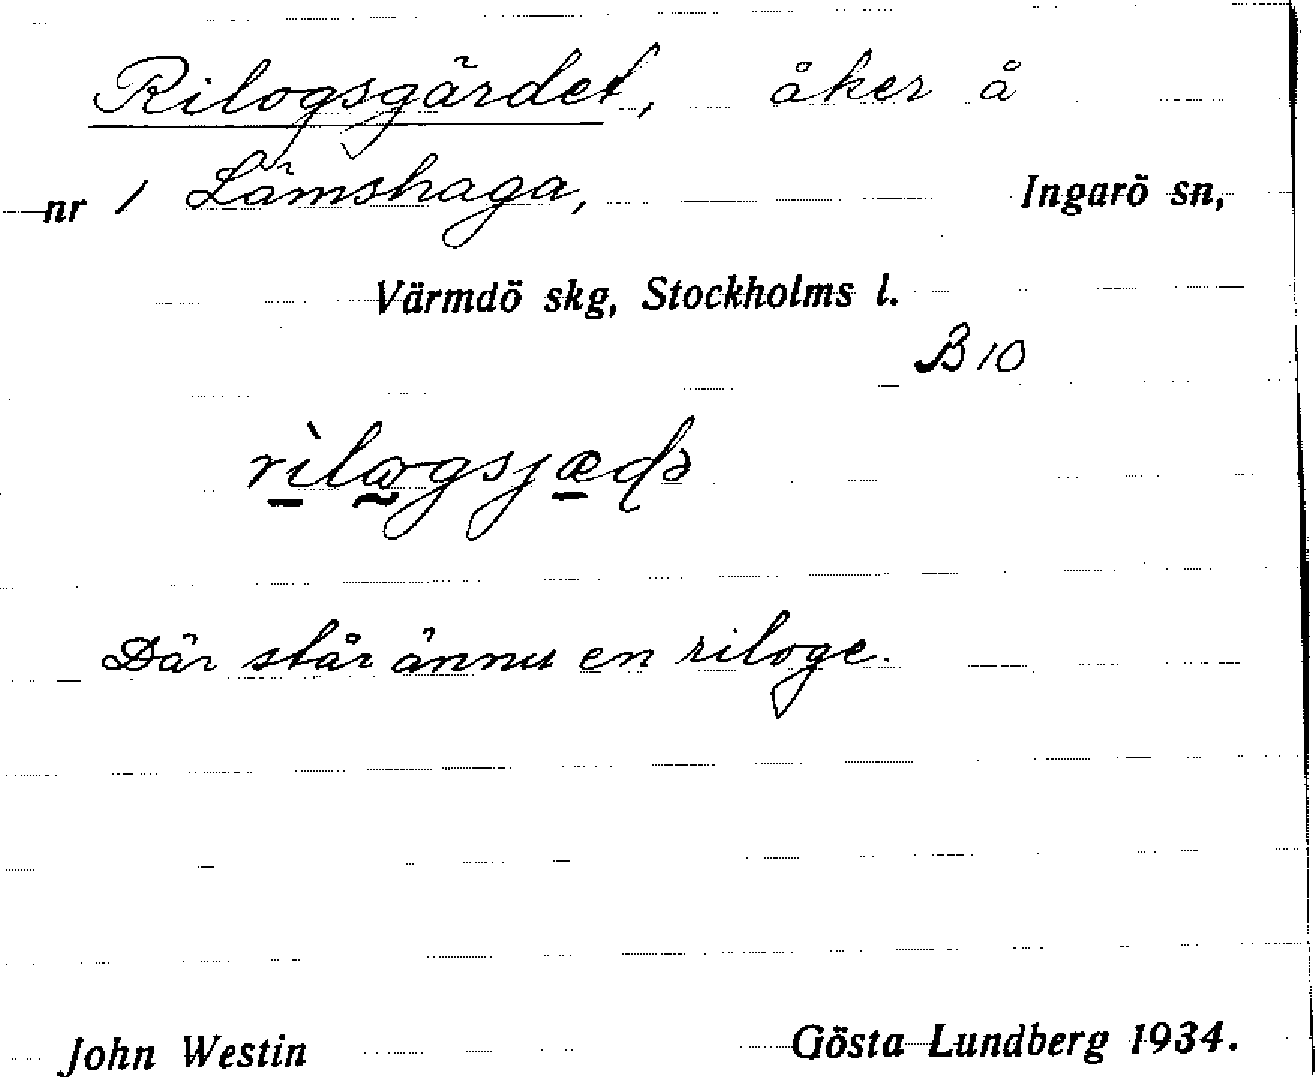 Rilogsgärdet, åker å
nr 1 Lämshaga, Ingarö sn,
Värmdö skg, Stockholms l.
B10
Där står ännu en riloge.
John Westin Gösta Lundberg 1934.